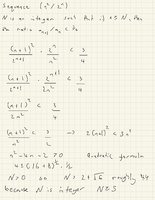 Sequence (n²/2ⁿ)
N is an integer such that if n ≥ N, then
the ratio aₙ₊₁/aₙ < ¾
(n+1)²/2ⁿ⁺¹ · 2ⁿ/n² < 3/4
(n+1)²/2ⁿ⁺¹ · 2ⁿ/n² < 3/4
(n+1)²/2n² < 3/4
(n+1)²/2n² < 3/4 → 2(n+1)² < 3n²
n² - 4n - 2 > 0 Quadratic formula
N > 0 so N > 2+√6 roughly 4.4
because N is integer N ≥ 5